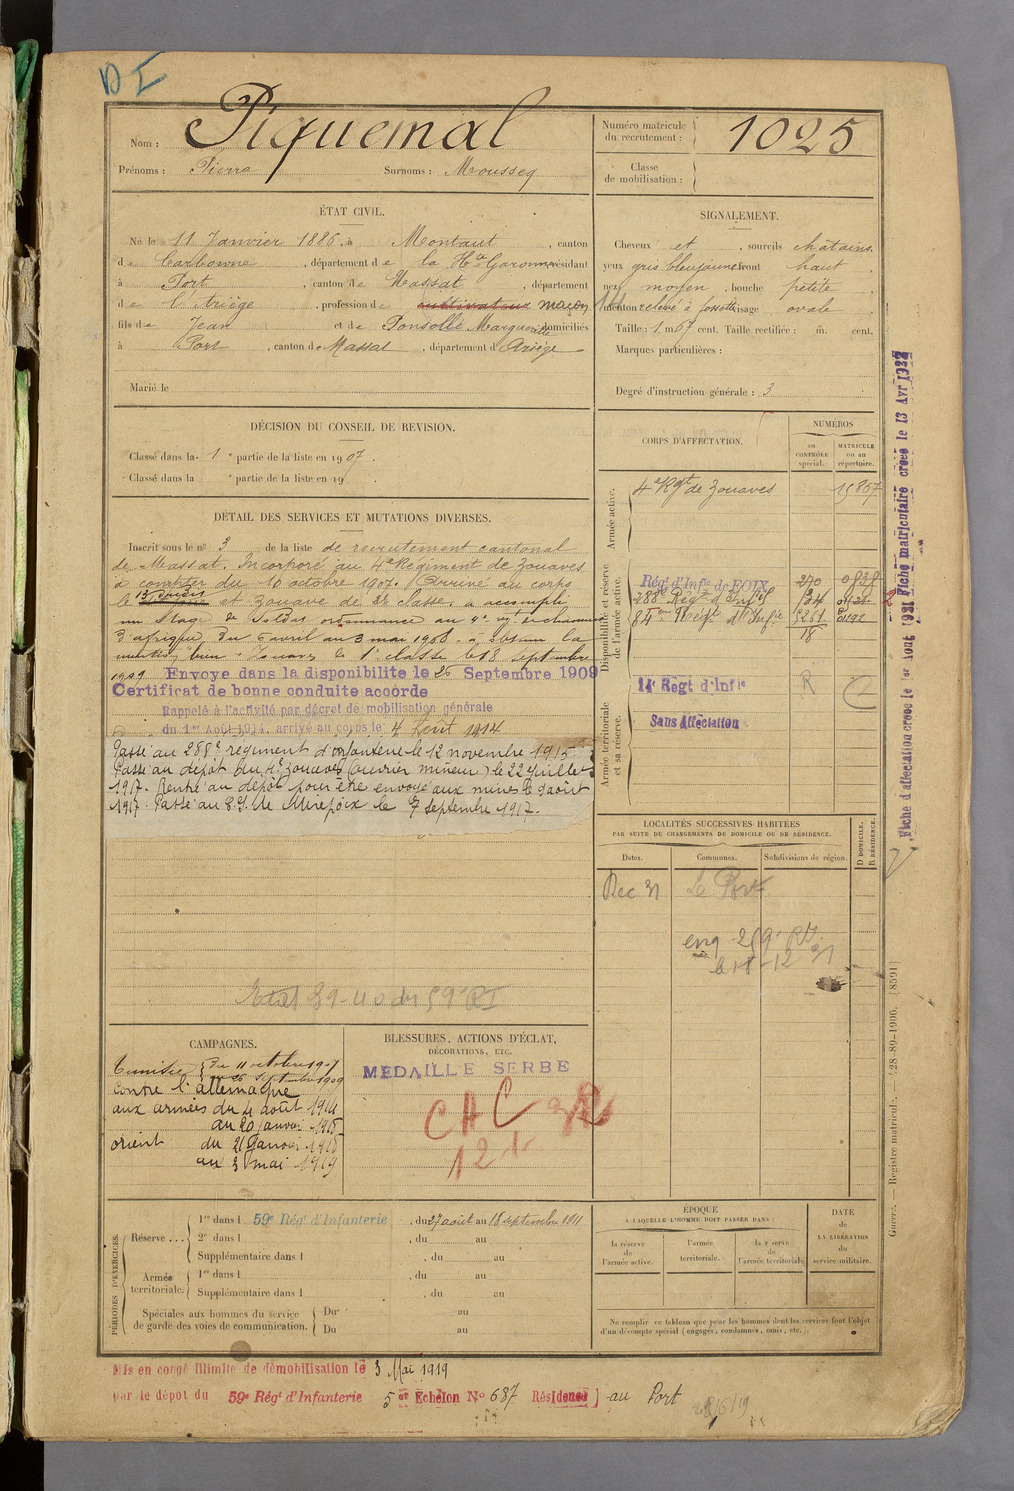 D I
Nom : Piquemal
Prénoms : Pierre Surnoms : Mousseq
Numéro matricule du recrutement : 1025
Classe de mobilisation :
ÉTAT CIVIL.
Né le 11 Janvier 1886, à Montaut, canton
de Carbonne, département de la Hte Garonne, résidant
à Port, canton de Massat, département
de l'Ariège, profession de cultivateur maçon
fils de Jean et de Ponsolle Marguerite domiciliés
à Port, canton de Massat, département d'Ariège
Marié le
SIGNALEMENT.
Cheveux et, sourcils châtains
yeux gris bleu jaune front haut
nez moyen, bouche petite
menton relevé à fossette visage ovale
Taille : 1 m 67 cent. Taille rectifiée : m. cent.
Marques particulières :
Degré d'instruction générale : 3
DÉCISION DU CONSEIL DE REVISION.
Classé dans la 1e partie de la liste en 1907.
Classé dans la e partie de la liste en 19
DÉTAIL DES SERVICES ET MUTATIONS DIVERSES.
Inscrit sous le n° 3 de la liste de recrutement cantonal
de Massat. Incorporé au 4e Régiment de Zouaves
à compter du 10 octobre 1907. Arrivé au corps
le et zouave de 2e classe, a accompli
un stage de Soldat ordonnance au 4e rgt de chasseurs
d'afrique, du 6 avril au 3 mai 1908. a obtenu la
mention "bien". Zouave de 1e classe le 18 septembre
1909 Envoyé dans la disponibilité le 26 Septembre 1909
Certificat de bonne conduite accordé
Rappelé à l'activité par décret de mobilisation générale
du 1er Août 1914, arrivé au corps le 4 Août 1914
Passé au 288e régiment d'infanterie le 12 novembre 1915
Passé au dépôt du 4e zouaves (ouvrier mineur) le 22 juillet
1917. Rentré au dépôt pour être envoyé aux mines le 9 août
1917. Passé au E.S. de Mirepoix le 7 septembre 1917.
Etat 39-40 du 59e RI
CORPS D'AFFECTATION.
NUMÉROS
au CONTRÔLE spécial.
MATRICULE ou au répertoire.
Armée active.
4e Rgt de Zouaves 15867
Disponibilité et réserve de l'armée active.
Régt d'Infie de FOIX 270
288e Régt d'Infie
84e Régt d'Infie
18
Armée territoriale et sa réserve.
14e Régt d'Infie R
Sans Affectation
LOCALITÉS SUCCESSIVES HABITÉES
PAR SUITE DE CHANGEMENTS DE DOMICILE OU DE RÉSIDENCE.
Dates. Communes. Subdivisions de région. D DOMICILE. R RÉSIDENCE.
Rec 31 Le Port
le 18-12 31
CAMPAGNES.
Tunisie du 11 octobre 1907
au 26 Septembre 1909
contre l'allemagne
aux armées du 4 août 1914
au 20 Janvier 1915
orient du 21 Janvier 1915
au 3 mai 1919
BLESSURES, ACTIONS D'ÉCLAT,
DÉCORATIONS, ETC.
MEDAILLE SERBE
PÉRIODES D'EXERCICES.
Réserve ... 1re dans l 59e Régt d'Infanterie, du 27 août au 18 septembre 1911
2e dans l , du au
Supplémentaire dans l , du au
Armée territoriale. 1re dans l , du au
Supplémentaire dans l , du au
Spéciales aux hommes du service
de garde des voies de communication. Du au
Du au
ÉPOQUE
À LAQUELLE L'HOMME DOIT PASSER DANS :
la réserve de l'armée active.
l'armée territoriale.
la réserve de l'armée territoriale
DATE de LA LIBÉRATION du service militaire.
Ne remplir ce tableau que pour les hommes dont les services font l'objet
d'un décompte spécial (engagés, condamnés, omis, etc.).
Mis en congé illimité de démobilisation le 3 Mai 1919
par le dépôt du 59e Régt d'Infanterie 5e Echelon N° 687 Résidence au Port
Fiche d'affectation créée le 1er Août 1921 Fiche matriculaire créée le 13 Avr 1922
Guerre. — Registre matricule. — 728-89-1906. [8591]